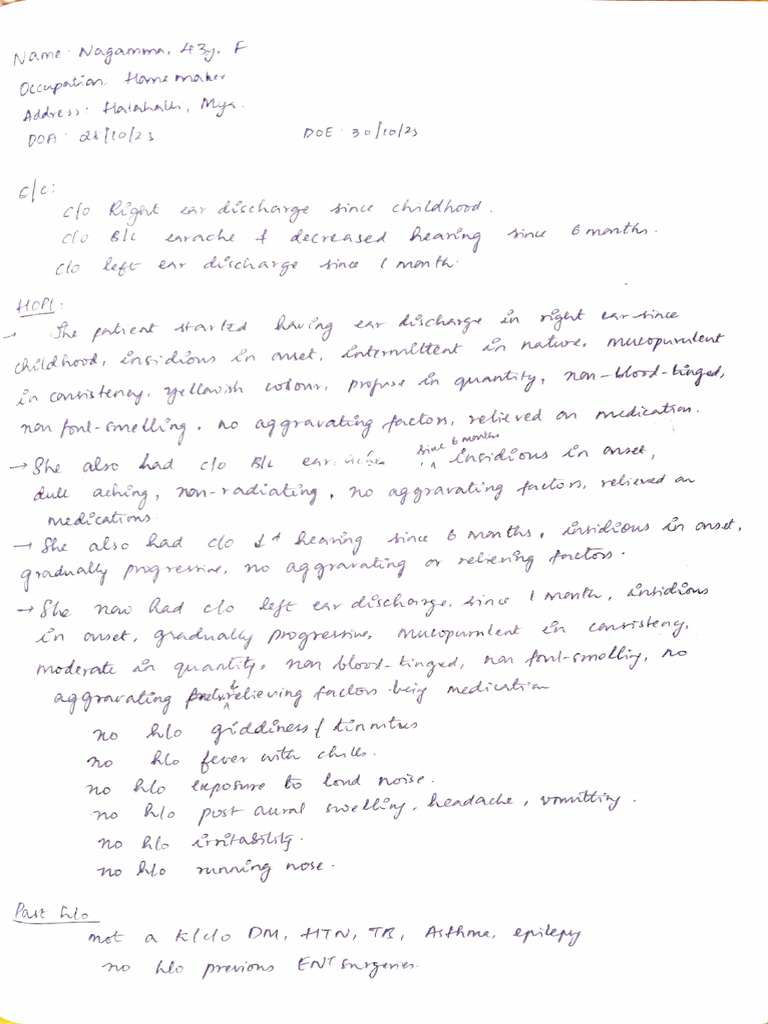 Name: Nagamma, 43y, F
Occupation: Home maker
Address: Halahalli, Mys.
DOA: 28/10/23 DOE: 30/10/23
C/C:
c/o Right ear discharge since childhood.
c/o B/L earache & decreased hearing since 6 months.
c/o left ear discharge since 1 month.
HOPI:
→ The patient started having ear discharge in right ear since
childhood, insidious in onset, intermittent in nature, mucopurulent
in consistency, yellowish colour, profuse in quantity, non-blood-tinged,
non foul-smelling, no aggravating factors, relieved on medication.
→ She also had c/o B/L ear since 6 months insidious in onset,
dull aching, non-radiating, no aggravating factors, relieved on
medications.
→ She also had c/o ↓d hearing since 6 months, insidious in onset,
gradually progressive, no aggravating or relieving factors.
→ She now had c/o left ear discharge, since 1 month, insidious
in onset, gradually progressive, mucopurulent in consistency,
moderate in quantity, non blood-tinged, non foul-smelling, no
aggravating & relieving factors being medication
no h/o giddiness / tinnitus
no h/o fever with chills.
no h/o exposure to loud noise.
no h/o post aural swelling, headache, vomitting.
no h/o irritability.
no h/o running nose.
Past h/o
not a k/c/o DM, HTN, TB, Asthma, epilepy
no h/o previous ENT surgeries.